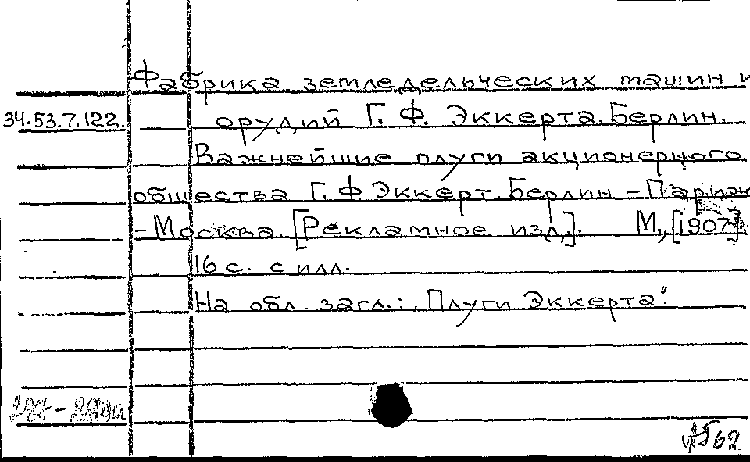 Фабрика земледельческих машин и
34.53.7.122. орудий Г. Ф. Эккерта. Берлин.
Важнейшие плуги акционерного
общества Г. Ф. Эккерт. Берлин – Париж
– Москва. [Рекламное изд.]. М., [1907].
16 с. с илл.
На обл. загл.: „Плуги Эккерта".
62